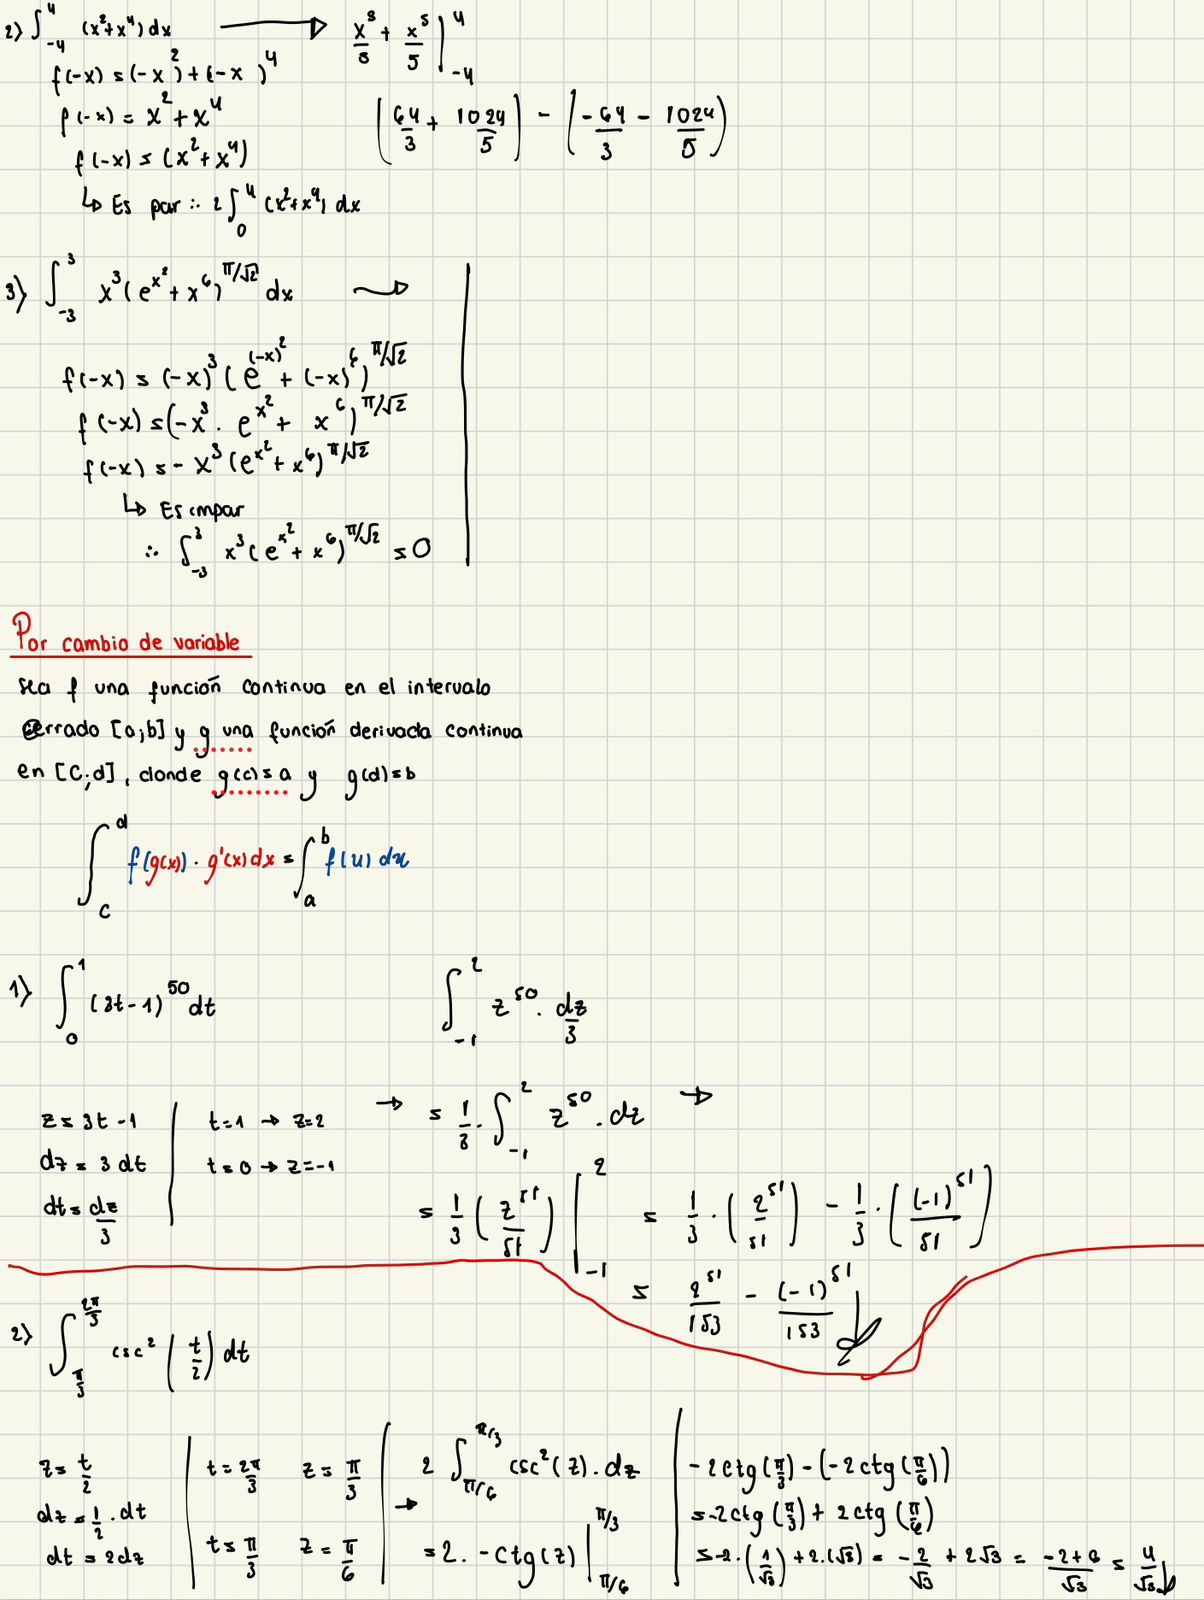 2) ∫₋₄⁴ (x²+x⁴) dx → x³/3 + x⁵/5 |₋₄⁴
f(-x) = (-x²) + (-x)⁴
f(-x) = x² + x⁴
(64/3 + 1024/5) - (-64/3 - 1024/5)
f(-x) = (x²+x⁴)
↳ Es par ∴ 2∫₀⁴ (x²+x⁴) dx
3) ∫₋₃³ x³(e^(x²) + x⁶)^(π/√2) dx →
f(-x) = (-x)³ (e^((-x)²) + (-x)⁶)^(π/√2)
f(-x) = (-x³ · e^(x²) + x⁶)^(π/√2)
f(-x) = -x³ (e^(x²) + x⁶)^(π/√2)
↳ Es impar
∴ ∫₋₃³ x³(e^(x²) + x⁶)^(π/√2) = 0
Por cambio de variable
Sea f una función continua en el intervalo
cerrado [a;b] y g una función derivada continua
en [c;d], donde g(c)=a y g(d)=b
∫_c^d f(g(x)) · g'(x) dx = ∫_a^b f(u) du
1) ∫₀¹ (3t-1)⁵⁰ dt
∫₋₁² z⁵⁰ · dz/3
z = 3t-1
dz = 3 dt
dt = dz/3
t=1 → z=2
t=0 → z=-1
→ = 1/3 · ∫₋₁² z⁵⁰ · dz →
= 1/3 (z⁵¹/51) |₋₁² = 1/3 · (2⁵¹/51) - 1/3 · ((-1)⁵¹/51)
= 2⁵¹/153 - (-1)⁵¹/153
2) ∫_(π/3)^(2π/3) csc² (t/2) dt
z = t/2
dz = 1/2 · dt
dt = 2dz
t = 2π/3 z = π/3
t = π/3 z = π/6
2 ∫_(π/6)^(π/3) csc²(z) · dz
→ = 2 · -ctg(z) |_(π/6)^(π/3)
-2ctg(π/3) - (-2ctg(π/6))
= -2ctg(π/3) + 2ctg(π/6)
= -2·(1/√3) + 2·(√3) = -2/√3 + 2√3 = (-2+6)/√3 = 4/√3